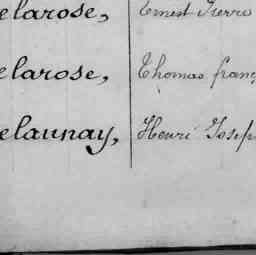 elarose, Ernest Pierre
elarose, Thomas franç
elaunay, Henri Josep